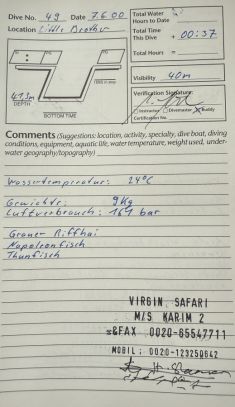 Dive No. 49 Date 7.6.00
Location Little Brother
Total Water
Hours to Date
Total Time
This Dive + 00:37
Total Hours =
Visibility 40m
DEPTH
BOTTOM TIME
Verification Signature:
Instructor Divemaster Buddy
Certification No.
Comments (Suggestions: location, activity, specialty, dive boat, diving
conditions, equipment, aquatic life, water temperature, weight used, under-
water geography/topography)
Wassertemperatur: 24°C
Gewichte: 9kg
Luftverbrauch: 161 bar
Grauer Riffhai
Napoleonfisch
Thunfisch
VIRGIN SAFARI
M/S KARIM 2
&FAX 0020-65547711
MOBIL: 0020-123250642